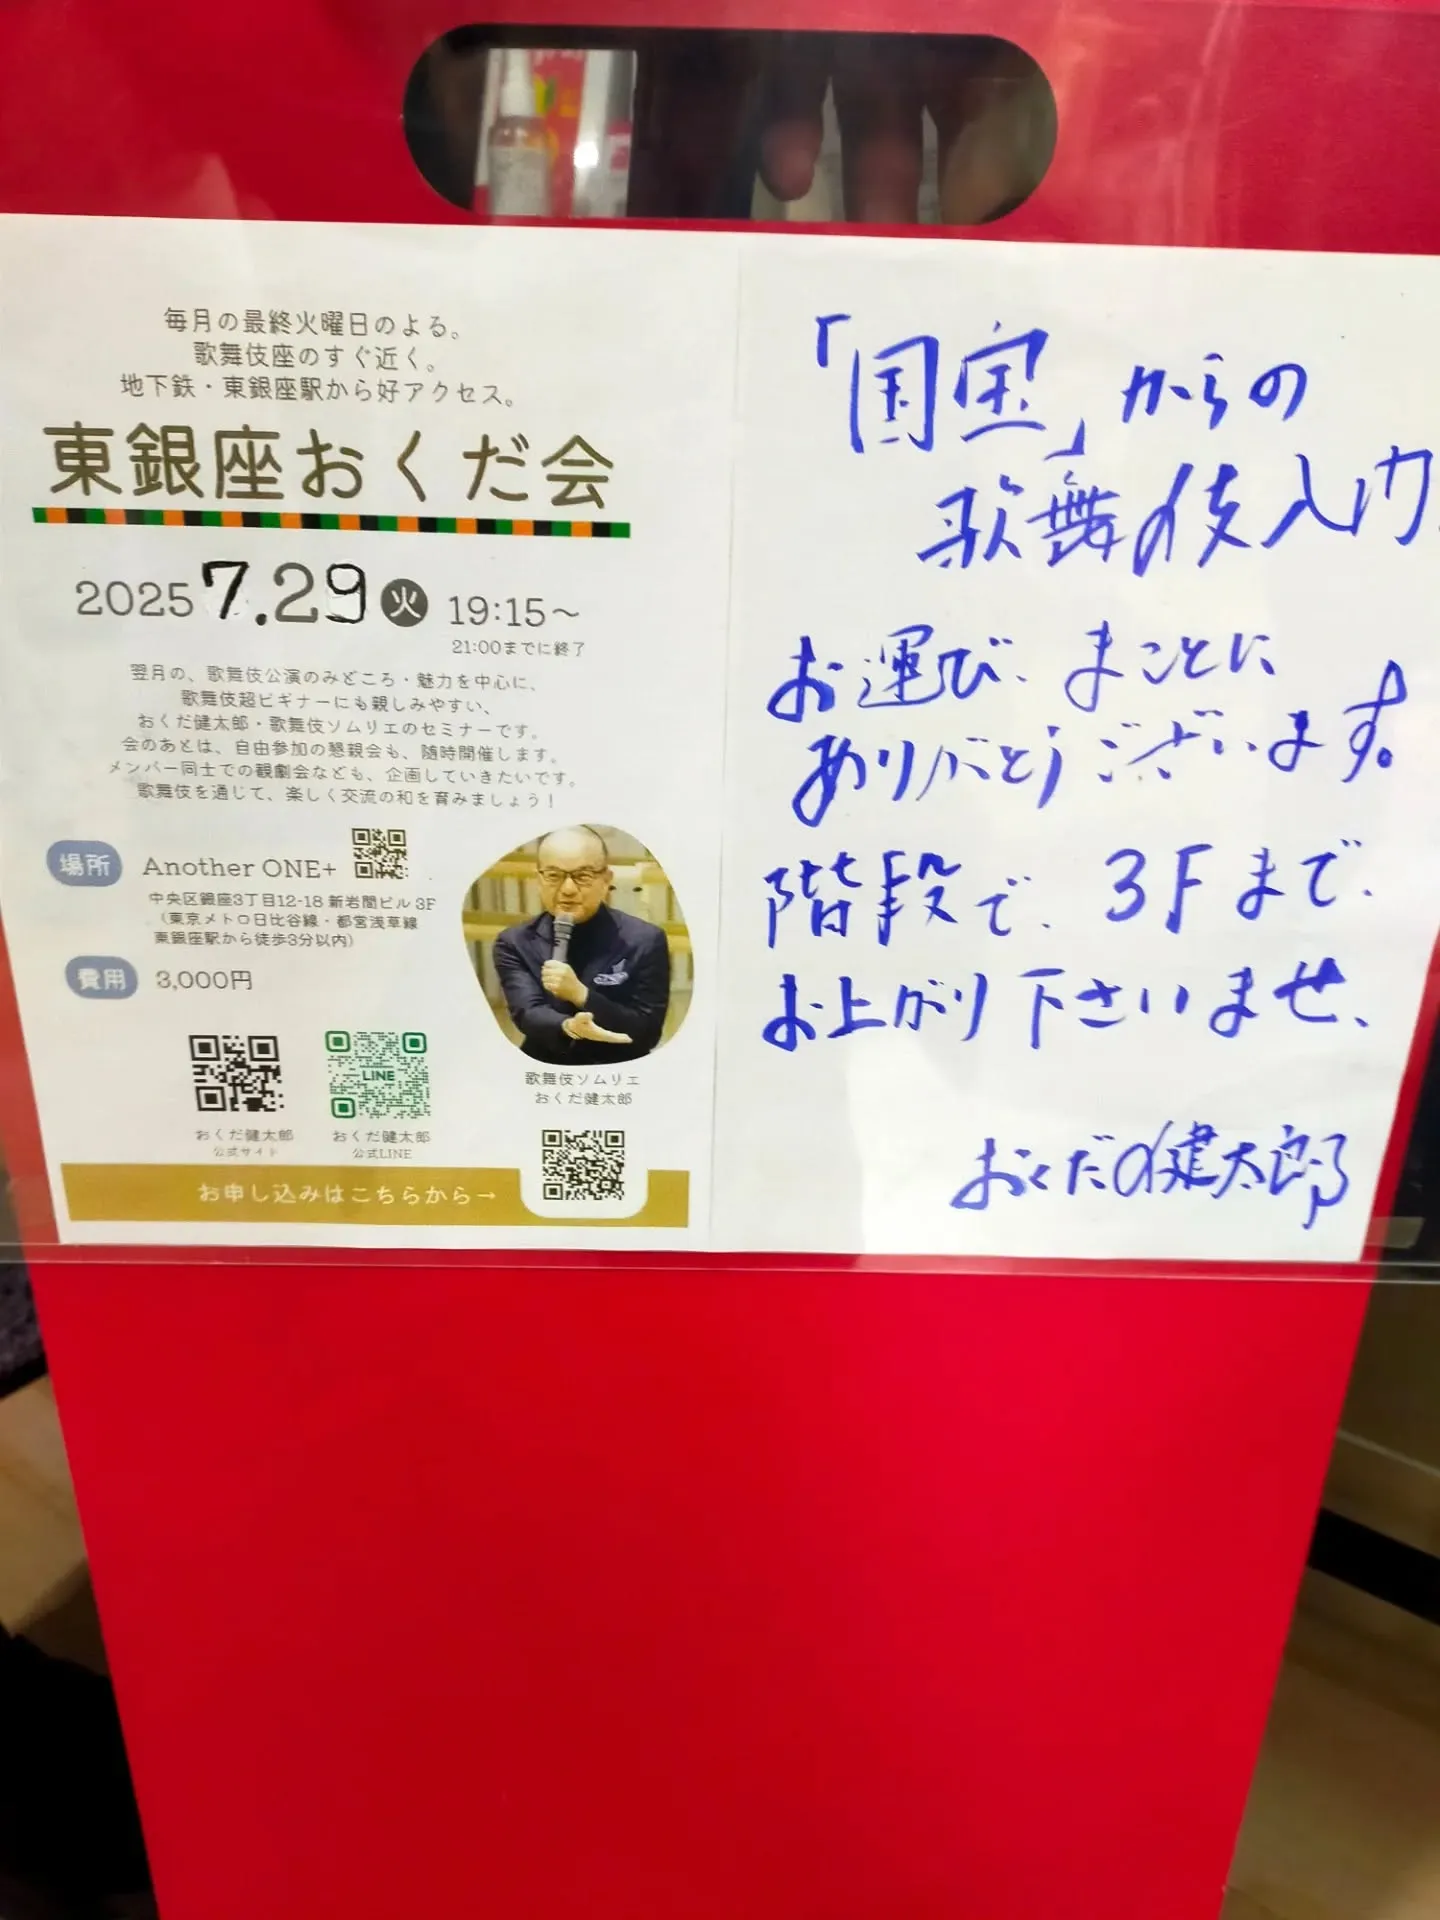 毎月の最終火曜日のよる。
歌舞伎座のすぐ近く。
地下鉄・東銀座駅から好アクセス。
東銀座おくだ会
2025 7.29 火 19:15～
21:00までに終了
翌月の、歌舞伎公演のみどころ・魅力を中心に、
歌舞伎超ビギナーにも親しみやすい、
おくだ健太郎・歌舞伎ソムリエのセミナーです。
会のあとは、自由参加の懇親会も、随時開催します。
メンバー同士での観劇会なども、企画していきたいです。
歌舞伎を通じて、楽しく交流の和を育みましょう！
場所 Another ONE+
中央区銀座3丁目12-18 新岩間ビル 3F
（東京メトロ日比谷線・都営浅草線
東銀座駅から徒歩3分以内）
費用 3,000円
歌舞伎ソムリエ
おくだ健太郎
おくだ健太郎
公式サイト
LINE
おくだ健太郎
公式LINE
お申し込みはこちらから→
「国宝」からの
歌舞伎入門
お運び、まことに
ありがとうございます。
階段で、3Fまで、
お上がり下さいませ、
おくだ健太郎